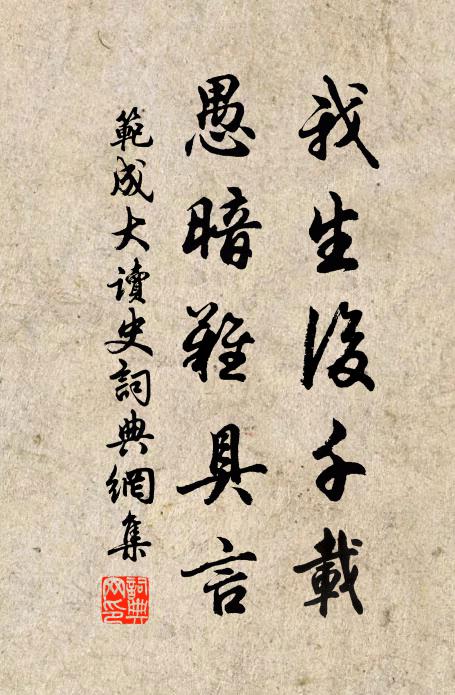 我生後千載
愚暗難具言
範成大讀史詞典網集
詞典網印